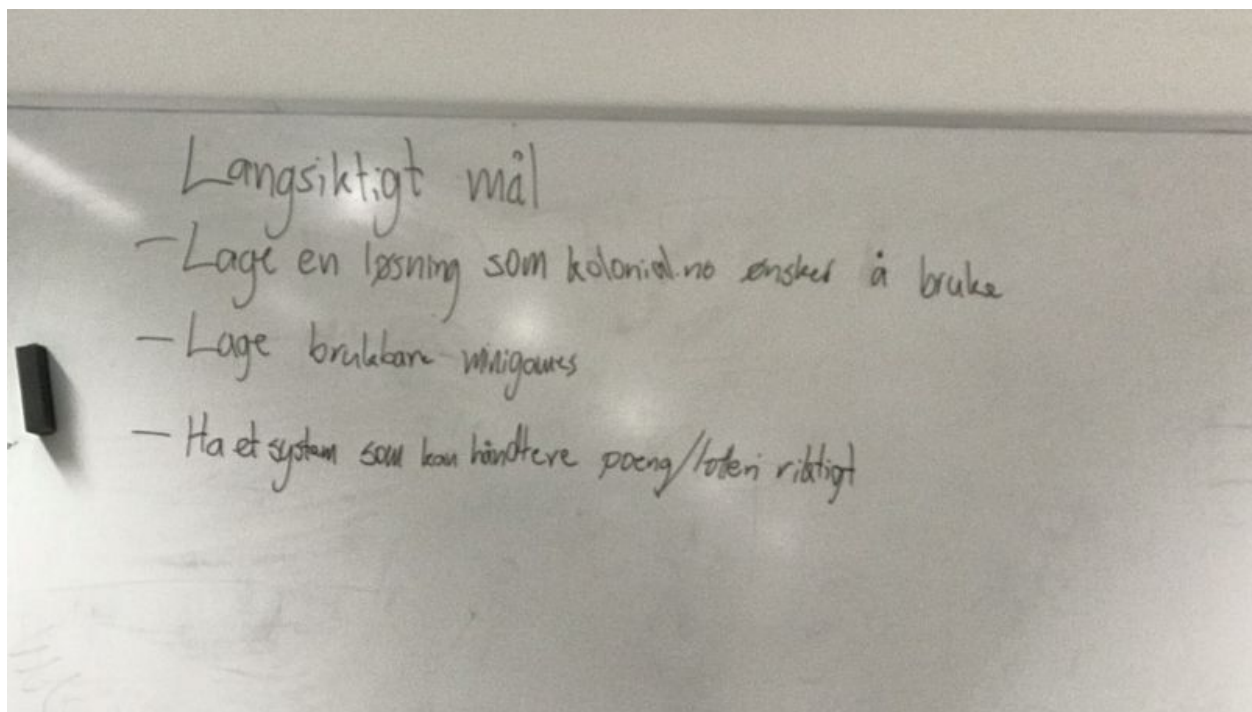 Langsiktigt mål
- Lage en løsning som kolonial.no ønsker å bruke
- Lage brukbare minigames
- Ha et system som kan håndtere poeng/loteri riktigt